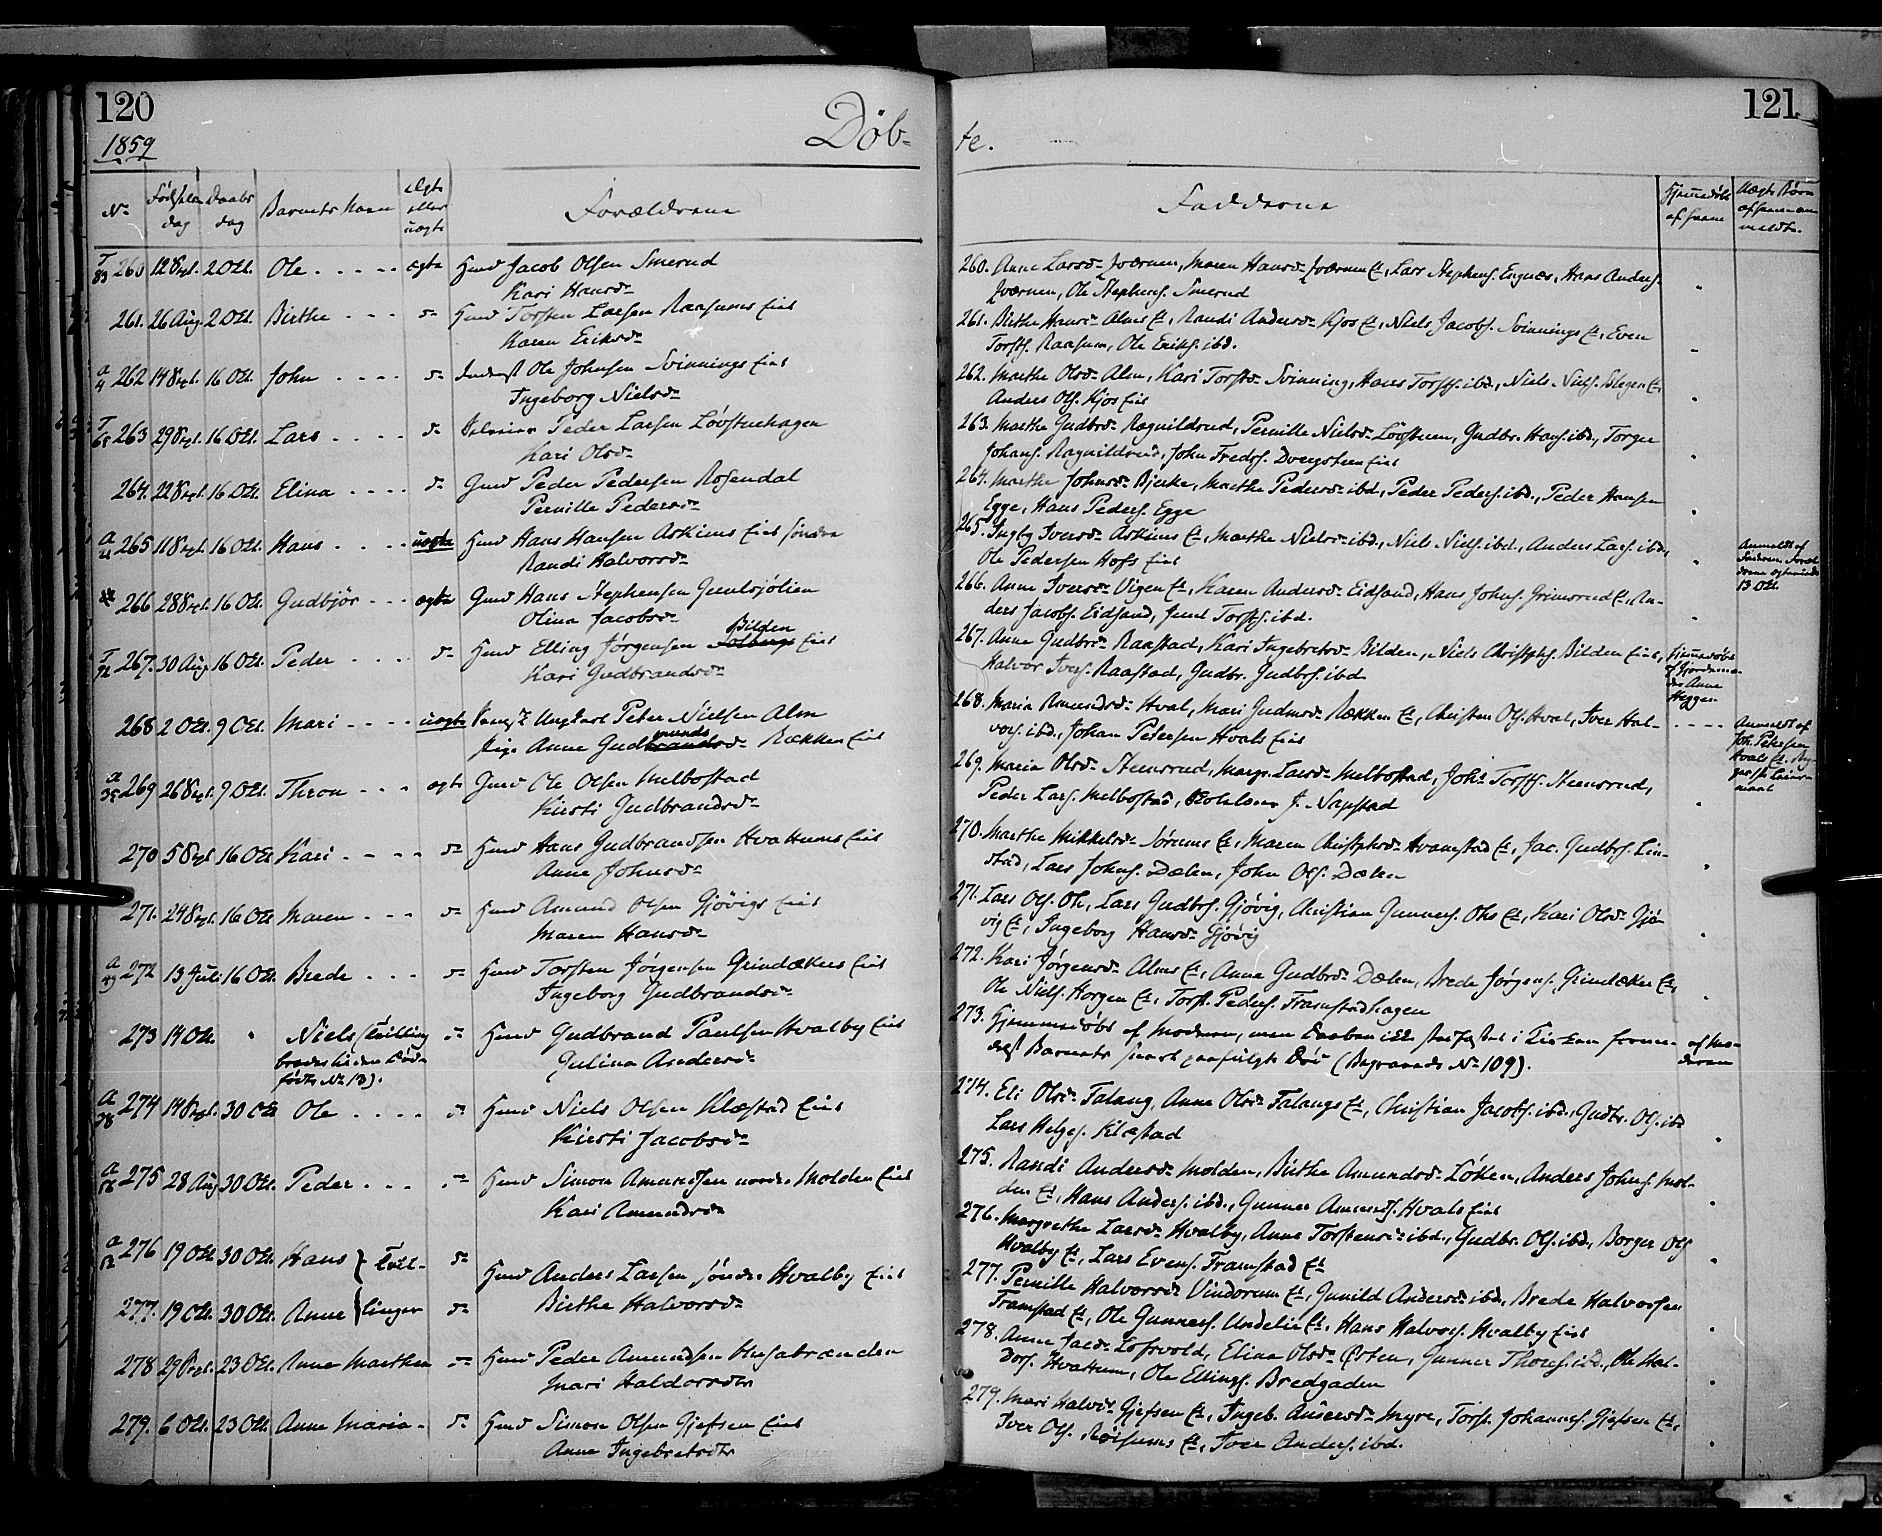 120
1859
Døb-
No
Fødsels
dag
Daabs
dag
Barnets Navn
Ægte
eller
uægte
Forældrene
T
83 260 12 Sept. 2 Oct. Ole . . . . . ægte Hmd Jacob Olsen Smerud
Kari Hansd.
261. 26 Aug. 2 Oct. Birthe . . . do Hmd Torsten Larsen Raasums Eie
Karen Eriksd.
a
4 262 14 Sept. 16 Oct. John . . . . do Inderst Ole Johnsen Svinnings Eie
Ingeborg Nielsd.
T
65 263 29 Sept. 16 Oct. Lars . . . . do Peder Larsen Løvstuehagen
Kari Olsd.
264. 22 Sept. 16 Oct. Elina . . . . do Gmd Peder Pedersen Rosendal
Pernille Pedersd.
a
265 11 Sept. 16 Oct. Hans . . . . uægte Hmd Hans Hansen Askims Eie søndre
Randi Halvorsd.
266 28 Sept. 16 Oct. Gudbjør . . . ægte Gmd Hans Stephensen
Olina Jacobsd.
T
72 267. 30 Aug. 16 Oct. Peder . . . . do Hmd Elling Jørgensen Solbergs Bilden Eie
Kari Gudbrandsd.
268 2 Oct. 9 Oct. Mari . . . . uægte Ungkarl Peter Nielsen Alm
Pige Anne Gudmundsd. Rækken Eie
a
35 269 26 Sept. 9 Oct. Thron . . . ægte Gmd Ole Olsen Melbostad
Kirsti Gudbrandsd.
270 5 Sept. 16 Oct. Kari . . . . . do Hmd Hans Gudbrandsen Hvattums Eie
Anne Johnsd.
271. 24 Sept. 16 Oct. Maren . . . do Hmd Amund Olsen Gjøvigs Eie
Maren Hansd.
a
49 272 13 Juli 16 Oct. Brede . . . do Hmd Torsten Jørgensen Grindakers Eie
Ingeborg Gudbrandsd.
273 14 Oct. " Niels (Tvilling do Hmd Gudbrand Paulsen Hvalby Eie
broder til den Død- Gulina Andersd.
fødte No 13).
a
78 274 14 Sept. 30 Oct. Ole . . . . do Hmd Niels Olsen Klæstad Eie
Kirsti Jacobsd.
a
275 28 Aug. 30 Oct. Peder . . . do Hmd Simon Amundsen nordre Molden Eie
Kari Amundsd.
a
12 276 19 Oct. 30 Oct. Hans } Tvil- do
Hmd Anders Larsen søndr. Hvalby Eie
277. 19 Oct. 30 Oct. Anne } linger do Birthe Halvorsd.
278 29 Sept. 23 Oct. Anne Marthea do Hmd Peder Amundsen
Mari Haldorsdtr
279. 6 Oct. 23 Oct. Anne Maria - do Hmd Simon Olsen Gjefsen Eie
Anne Ingebretsdtr
121
te.
Fadderne
Hjemmedøbt
af hvem
Uægte Børn
af hvem an-
meldt.
260. Anne Larsd. Joærnen, Maren Hansd. Joærnen E., Lars Stephens. Engnæs, Hans Anders.
Joærnen, Ole Stephens. Smerud
261. Birthe Hansd. Alms E., Randi Andersd. Kjos E., Niels Jacobs. Svinnings E., Even
Torsts. Raasum, Ole Eriks. ibd.
262. Marthe Olsd. Alm, Kari Torstd. Svinning, Hans Torsts. ibd., Niels Niels. E.,
Anders Ols. Kjos Eie
263. Marthe Gudbrd. Ragnildrud, Pernille Nielsd. Løvstuen, Gudbr. Hans. ibd., Torger
Johans. Ragnildrud, John Freds. Dvergsteen Eie
264. Marthe Johnsd. Bjerke, Marthe Pedersd. ibd., Peder Peders. ibd., Peder Hansen
Egge, Hans Peders. Egge
265. Ingbg Iversd. Askims E., Marthe Nielsd. ibd., Niels Niels. ibd., Anders Lars. ibd.,
Ole Pedersen Hofs Eie
Anmeldt af
13 Oct.
266. Anne Iversd. Vigen E., Karen Andersd. Eidsand, Hans Johns. Grimsrud E., An-
ders Jacobs. Eidsand, Torsts. ibd.
267. Anne Gudbrd. Raastad, Kari Ingebretsd. Bilden, Niels Christophs. Bilden Eie,
Halvor Ivers. Raastad, Gudbr. Gudbrs. ibd.
Hjemmedøbt
af Gjordemo-
der Anne
Heggen
268. Maria Amundsd. Hval, Mari Gudmd. Rækken E., Christen Ols. Hval, Iver Hal-
vors. ibd., Johan Petersen Hvals Eie
Anmeldt af
Joh. Petersen
Hvals E.
269. Maria Olsd. Steensrud, Margr. Larsd. Melbostad, Johs Torsts. Steensrud,
Peder Lars. Melbostad, J. Napstad
270. Marthe Mikkelsd. Sørums E., Maren Christophsd. Framstad E., Jac. Gudbrs. Lin-
stad, Lars Johns. Dælen, John Ols. Dælen
271. Lars Ols. Oh, Lars Gudbrs. Gjøvig, Christian Gunners. Ohs E., Kari Olsd. Gjø-
vig E., Ingeborg Hansd. Gjøvig
272. Kari Jørgensd. Alms E., Anne Gudbrd. Dælen, Brede Jørgens. Grindaker E.,
Ole Niels. Horgen E., Torst. Peders. Framstadhagen
273. Hjemmedøbt af Moderen, men Daaben ikke stadfæstet i Kirken forme-
delst Barnets snart paafulgte Død (Begravede No 109).
af Mo-
deren
274. Eli Olsd. Falang, Anne Olsd. Falangs E., Christian Jacobs. ibd., Gudbr. Ols. ibd
Lars Helges. Klæstad
275. Randi Andersd. Molden, Birthe Amundsd. Løken, Anders Johns. Mol-
den E., Hans Anders. ibd., Gunner Amunds. Hvals Eie
276. Margrethe Larsd. Hvalby, Anne Torstensd. ibd., Gudbr. Ols. ibd., Borger Ols
Hvalby E., Lars Evens. Framstad E.
277. Pernille Halvorsd. Vindorum E., Gunild Andersd. ibd., Brede Halvorsen
Framstad E., Ole Gunners. Undelie E., Hans Halvors. Hvalby Eie
278. Anne Jacd. Lofsvold, Elina Olsd. Ørten, Gunner Thors. ibd., Ole Hal-
dors. Hvattum, Ole Ellings. Bredgaden
279. Mari Halvd. Gjefsen E., Ingeb. Andersd. Myre, Torst. Johannes. Gjefsen E.,
Iver Ols. Røisums E., Iver Anders. ibd.